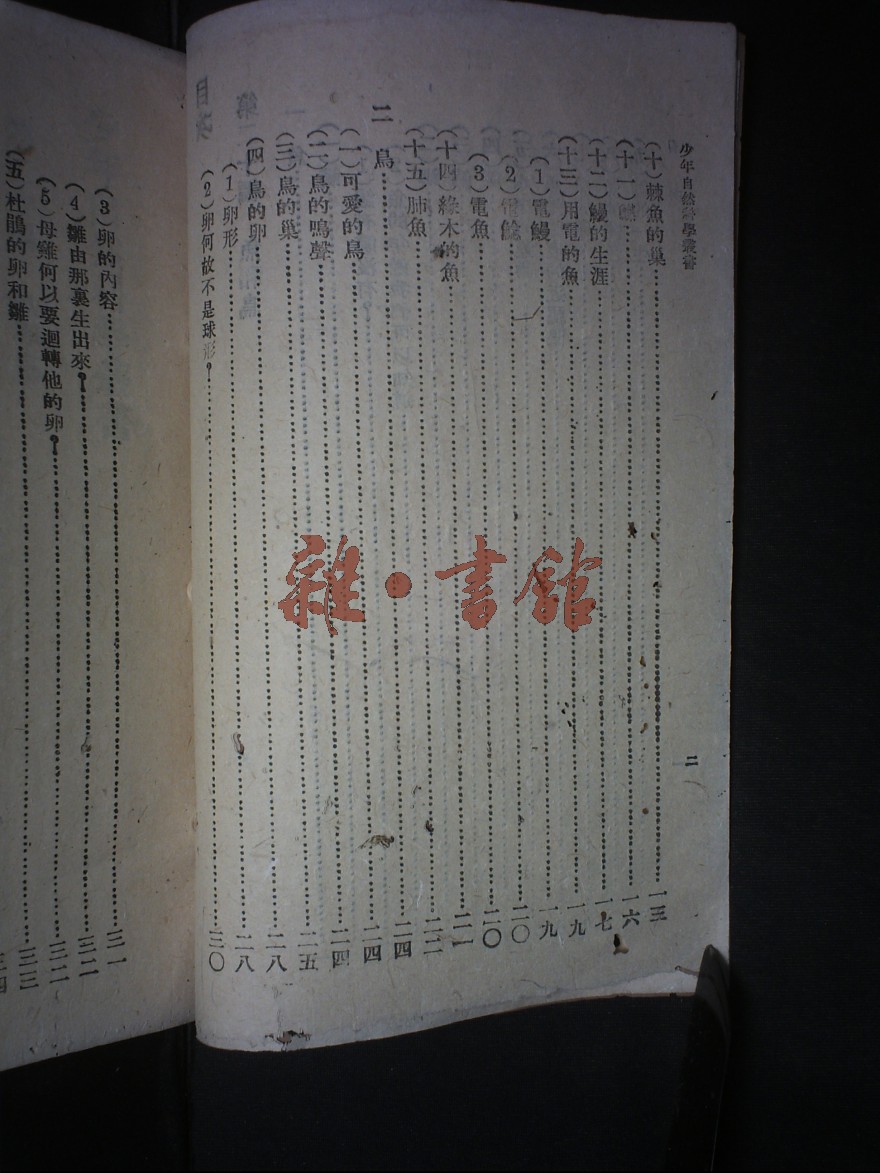 少年自然科學叢書
二
(十)棘魚的巢……一三
(十一)……一六
(十二)鰻的生涯……一七
(十三)用電的魚……一九
(1)電鰻……一九
(2)電鯰……二〇
(3)電魚……二〇
(十四)緣木的魚……二一
(十五)肺魚……二二
二 鳥……二四
(一)可愛的鳥……二四
(二)鳥的鳴聲……二四
(三)鳥的巢……二五
(四)鳥的卵……二八
(1)卵形……二八
(2)卵何故不是球形……三〇
(3)卵的內容……三一
(4)雛由那裏生出來……三二
(5)母雞何以要迴轉他的卵……三二
(五)杜鵑的卵和雛……三三
三四
雜·書館